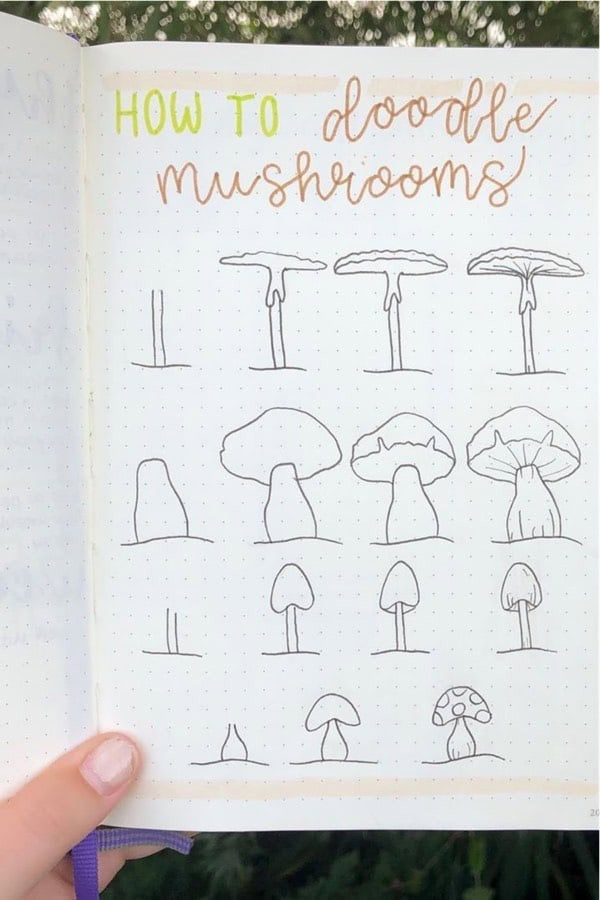 HOW TO doodle
mushrooms